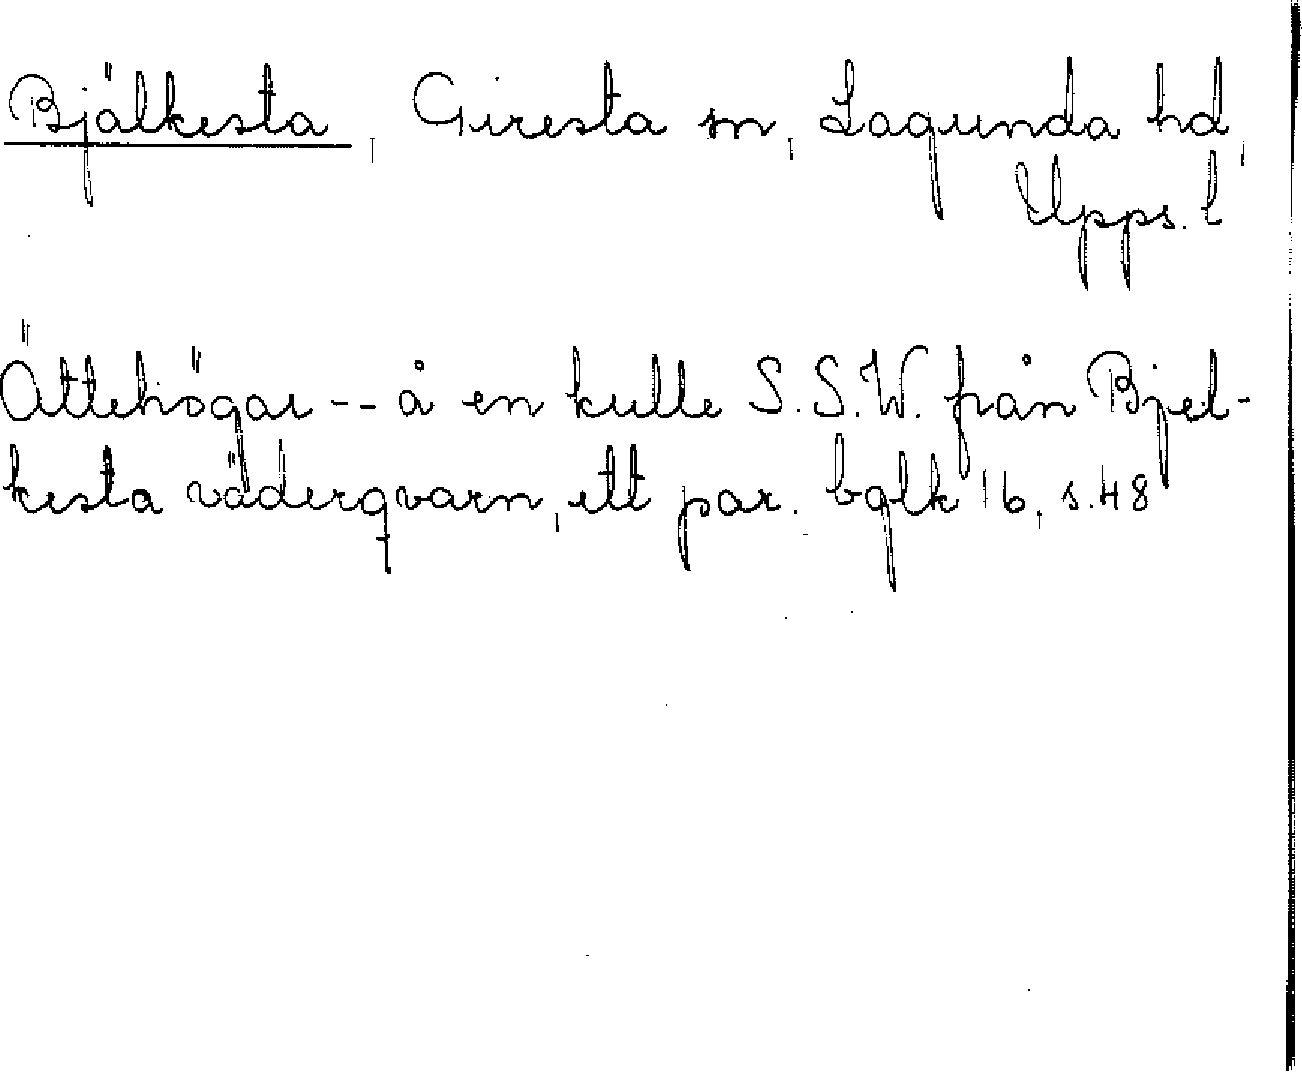 Bjälkesta, Giresta sn, Lagunda hd,
Upps. l
Ättehögar -- å en kulle S.S.W. från Bjel-
kesta väderqvarn, ett par. bglk 16, s.48